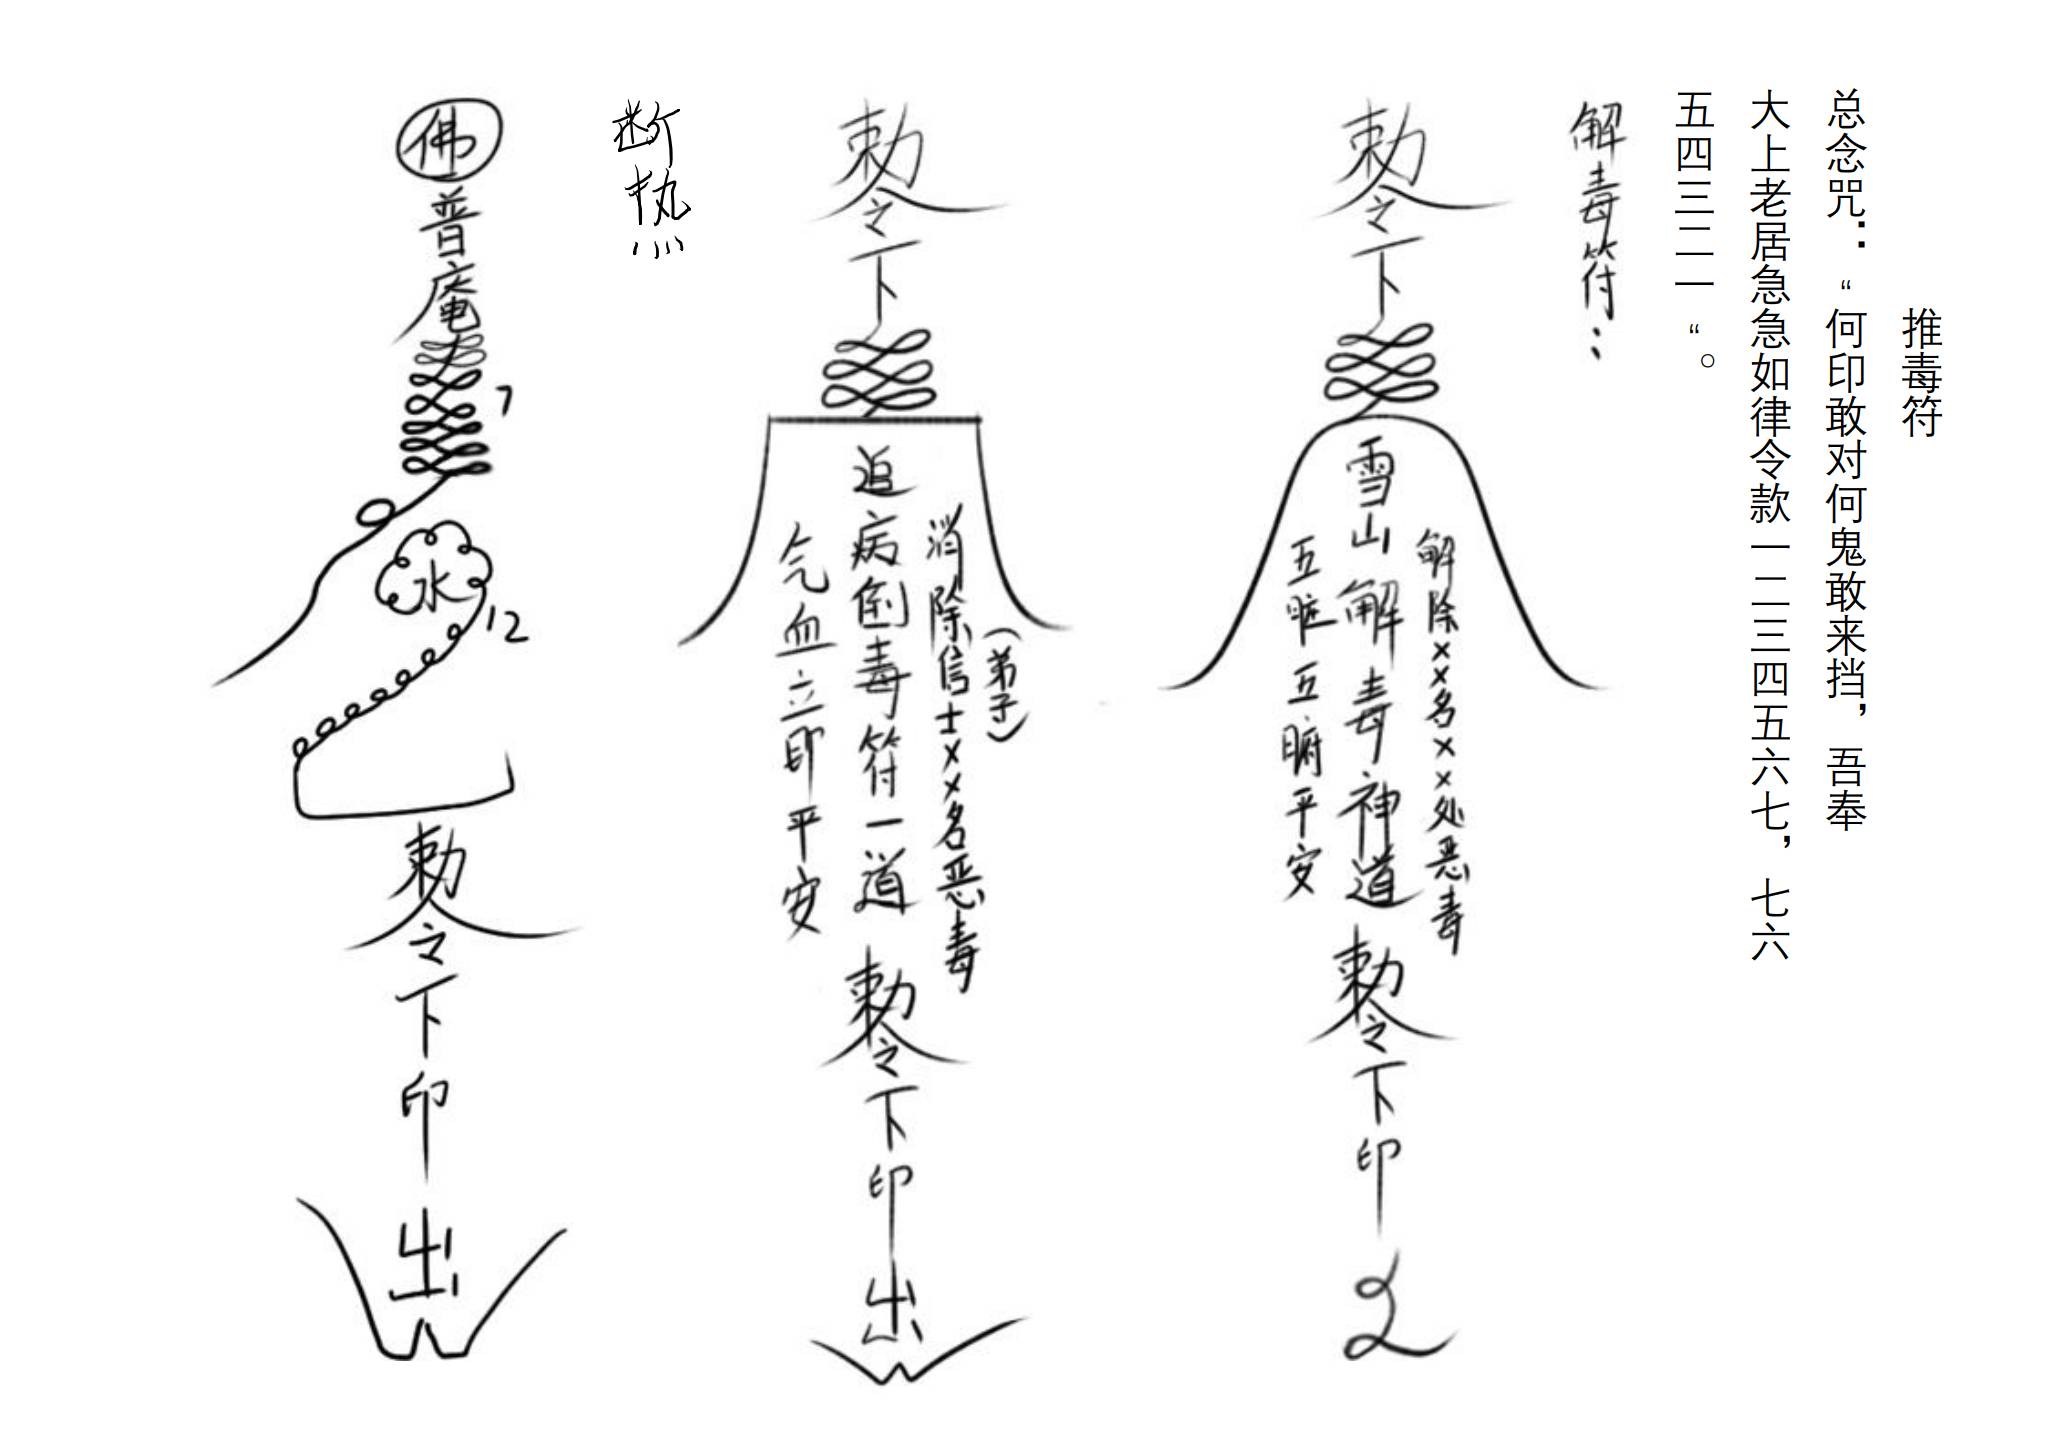 推毒符
总念咒：“何印敢对何鬼敢来挡，吾奉
大上老居急急如律令款一二三四五六七，七六
五四三二一“。
解毒符：
敕令下
解除××名××处恶毒
雪山解毒神道
五脏五腑平安
敕令下印
敕令下
(弟子)
消除信士××名恶毒
追病倒毒符一道
气血立即平安
敕令下印
出
断热
佛
普庵
7
水
12
敕令下印
出